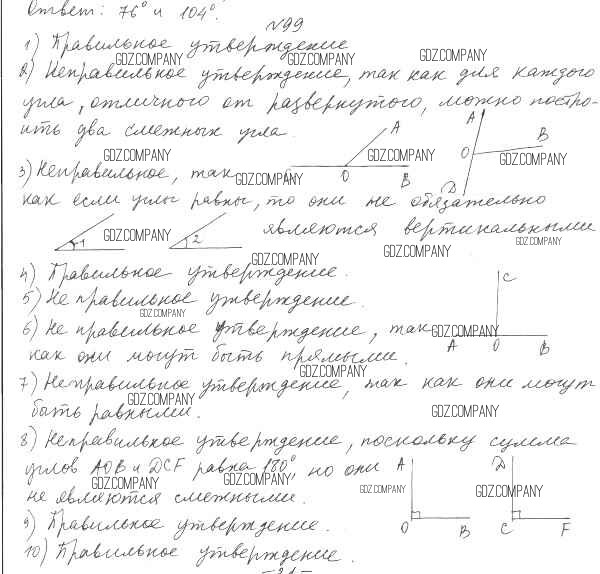 Ответ: 76° и 104°.
№99
1) Правильное утверждение
GDZ.COMPANY GDZ.COMPANY GDZ.COMPANY
2) Неправильное утверждение, так как для каждого
угла, отличного от развернутого, можно постро-
ить два смежных угла.
A
A
B
O
D
GDZ.COMPANY GDZ.COMPANY GDZ.COMPANY
O B
3) Неправильное, так
GDZ.COMPANY
как если углы равны, то они не обязательно
являются вертикальными
1 GDZ.COMPANY 2
GDZ.COMPANY
GDZ.COMPANY GDZ.COMPANY
4) Правильное утверждение.
5) Не правильное утверждение.
GDZ.COMPANY
6) Не правильное утверждение, так
GDZ.COMPANY
как они могут быть прямыми.
C
A O B
GDZ.COMPANY
7) Неправильное утверждение, так как они могут
быть равными.
GDZ.COMPANY GDZ.COMPANY
8) Неправильное утверждение, поскольку сумма
углов AOB и DCF равна 180°, но они
GDZ.COMPANY GDZ.COMPANY GDZ.COMPANY GDZ.COMPANY
не являются смежными.
A
O B
D
C F
9) Правильное утверждение.
10) Правильное утверждение.